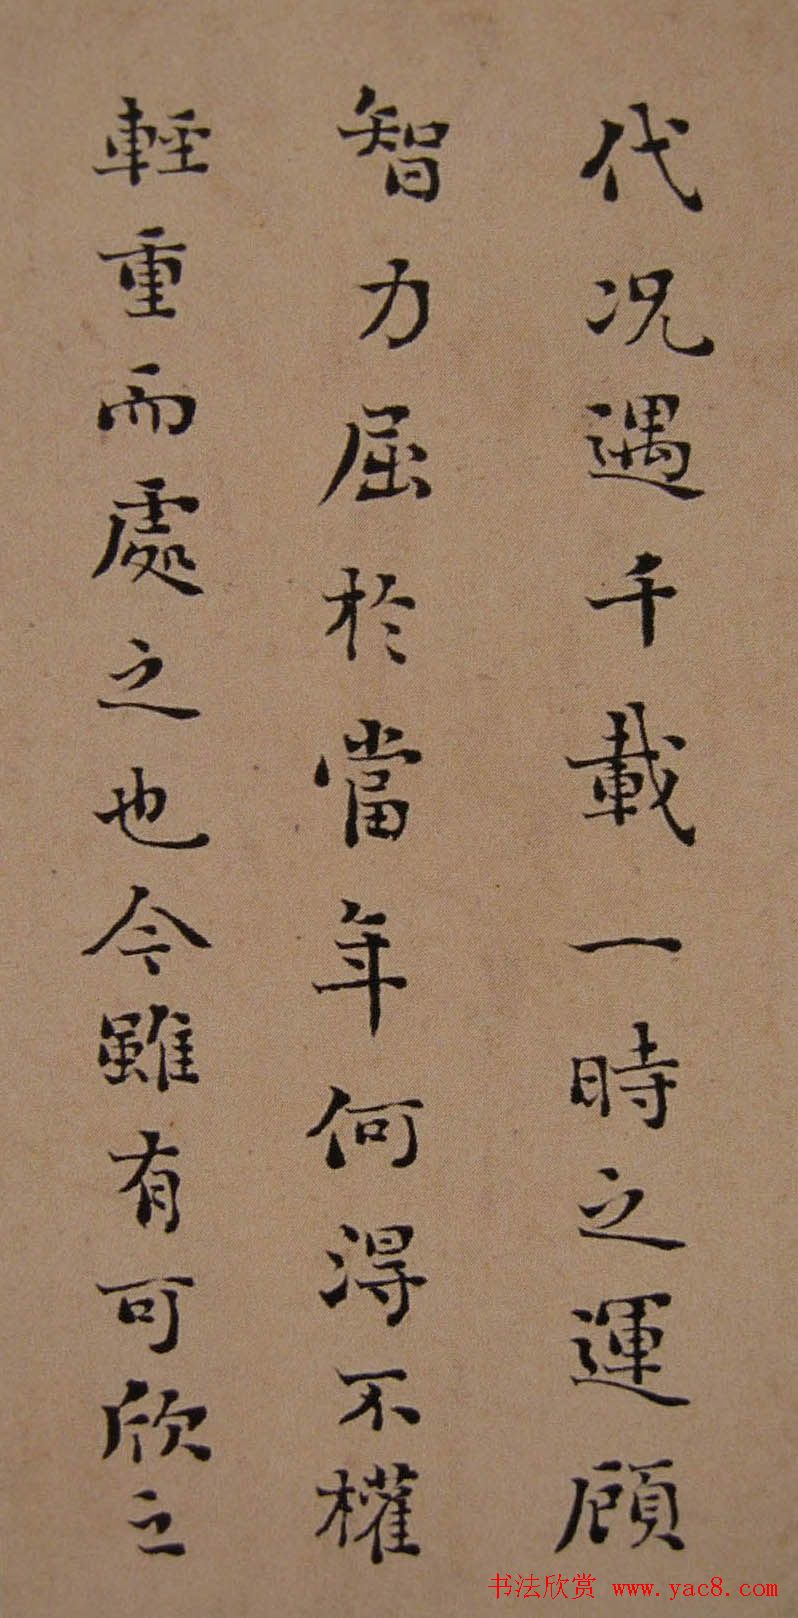 代况遇千載一時之運顧
智力屈於當年何得不權
輕重而處之也今雖有可欣之
书法欣赏 www.yac8.com